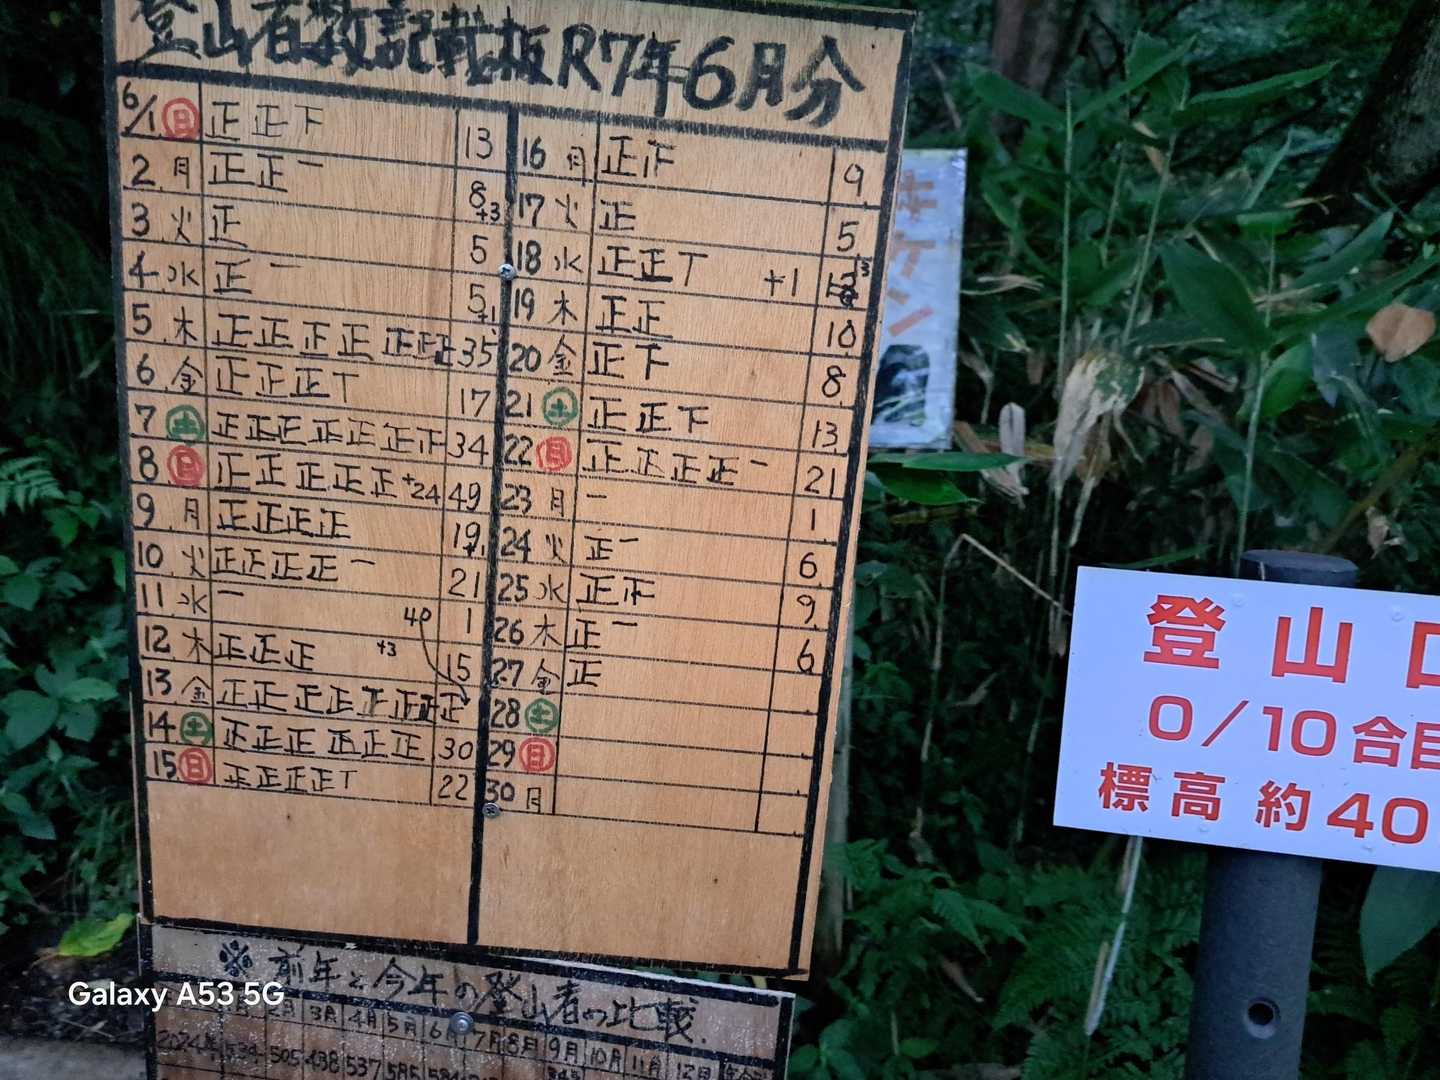 登山者数記載板R7年6月分
6/1 日 正正下 13
2 月 正正一 8+3
3 火 正 5
4 水 正一 5+1
5 木 正正正正正正正 35
6 金 正正正T 17
7 土 正正正正正正正 34
8 日 正正正正正 +24 49
9 月 正正正正 19+1
10 火 正正正正一 21
11 水 一 1
12 木 正正正 +3 15
13 金 正正正正正正正正 40
14 土 正正正正正正 30
15 日 正正正正T 22
16 月 正正 9
17 火 正 5
18 水 正正T +1 13
19 木 正正 10
20 金 正下 8
21 土 正正下 13
22 日 正正正正一 21
23 月 一 1
24 火 正一 6
25 水 正正 9
26 木 正一 6
27 金 正
28 土
29 日
30 月
※前年と今年の登山者の比較
2月 3月 4月 5月 6月 7月 8月 9月 10月 11月 12月
2024年 534 505 438 537 585
登山口
0/10合目
標高約40
Galaxy A53 5G